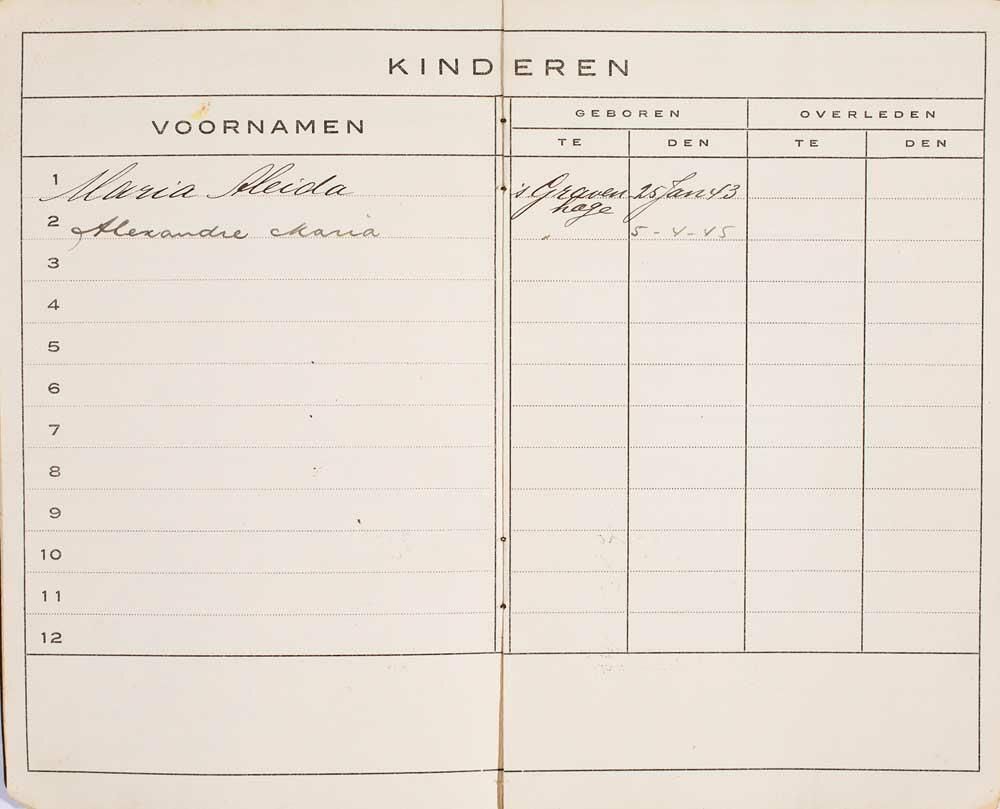 KINDEREN
VOORNAMEN
GEBOREN
OVERLEDEN
TE
DEN
TE
DEN
1 Maria Aleida 's Graven 25 Jan 43
hage
2 Alexandre Maria " 5-4-45
3
4
5
6
7
8
9
10
11
12